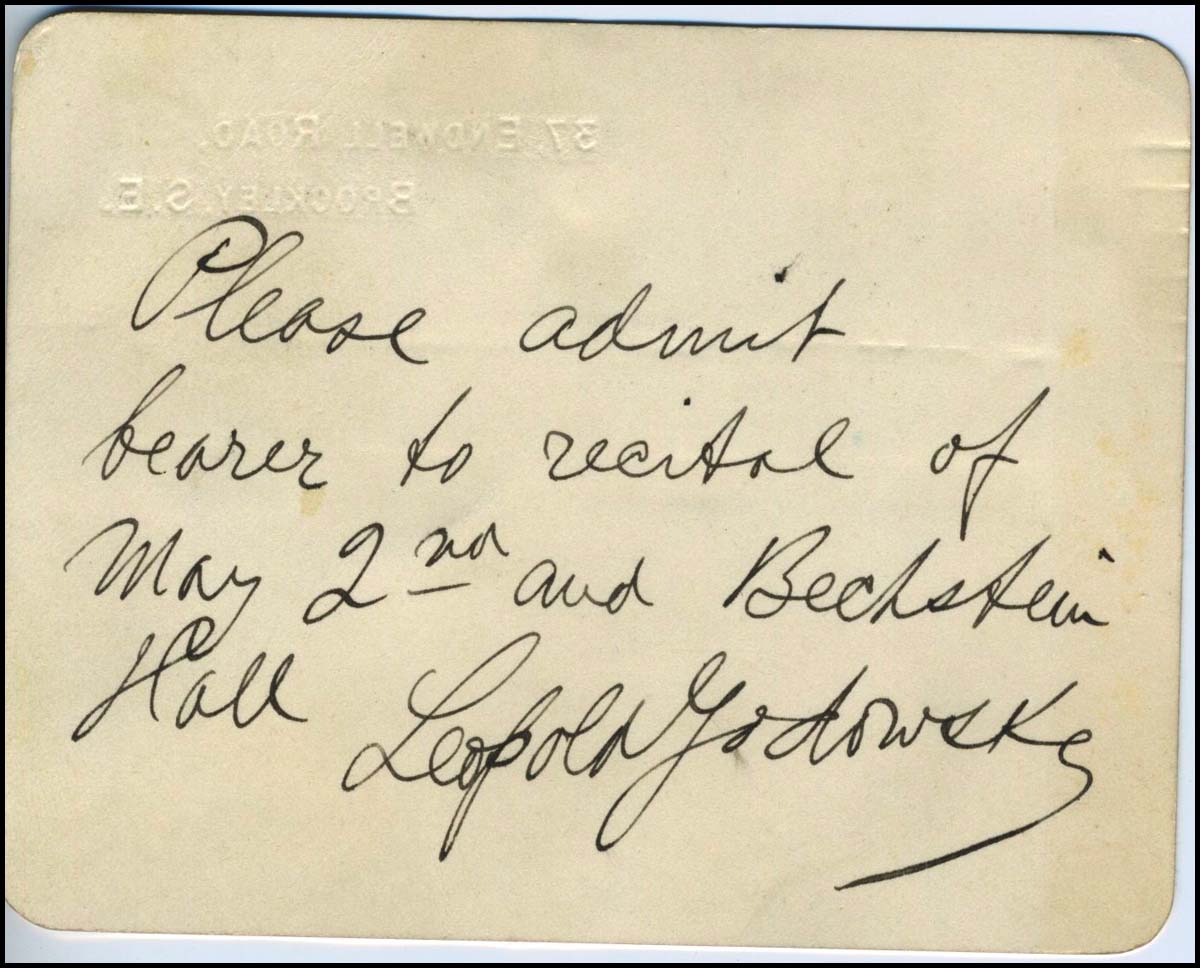 37, ENDWELL ROAD,
BROCKLEY. S.E.
Please admit
bearer to recital of
May 2nd and Bechstein
Hall Leopold Godowsky